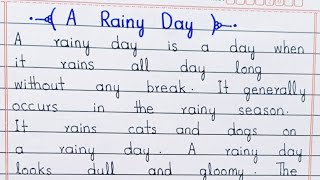 A Rainy Day
A rainy day is a day when
it rains all day long
without any break. It generally
occurs in the rainy season.
It rains cats and dogs on
a rainy day. A rainy day
looks dull and gloomy. The